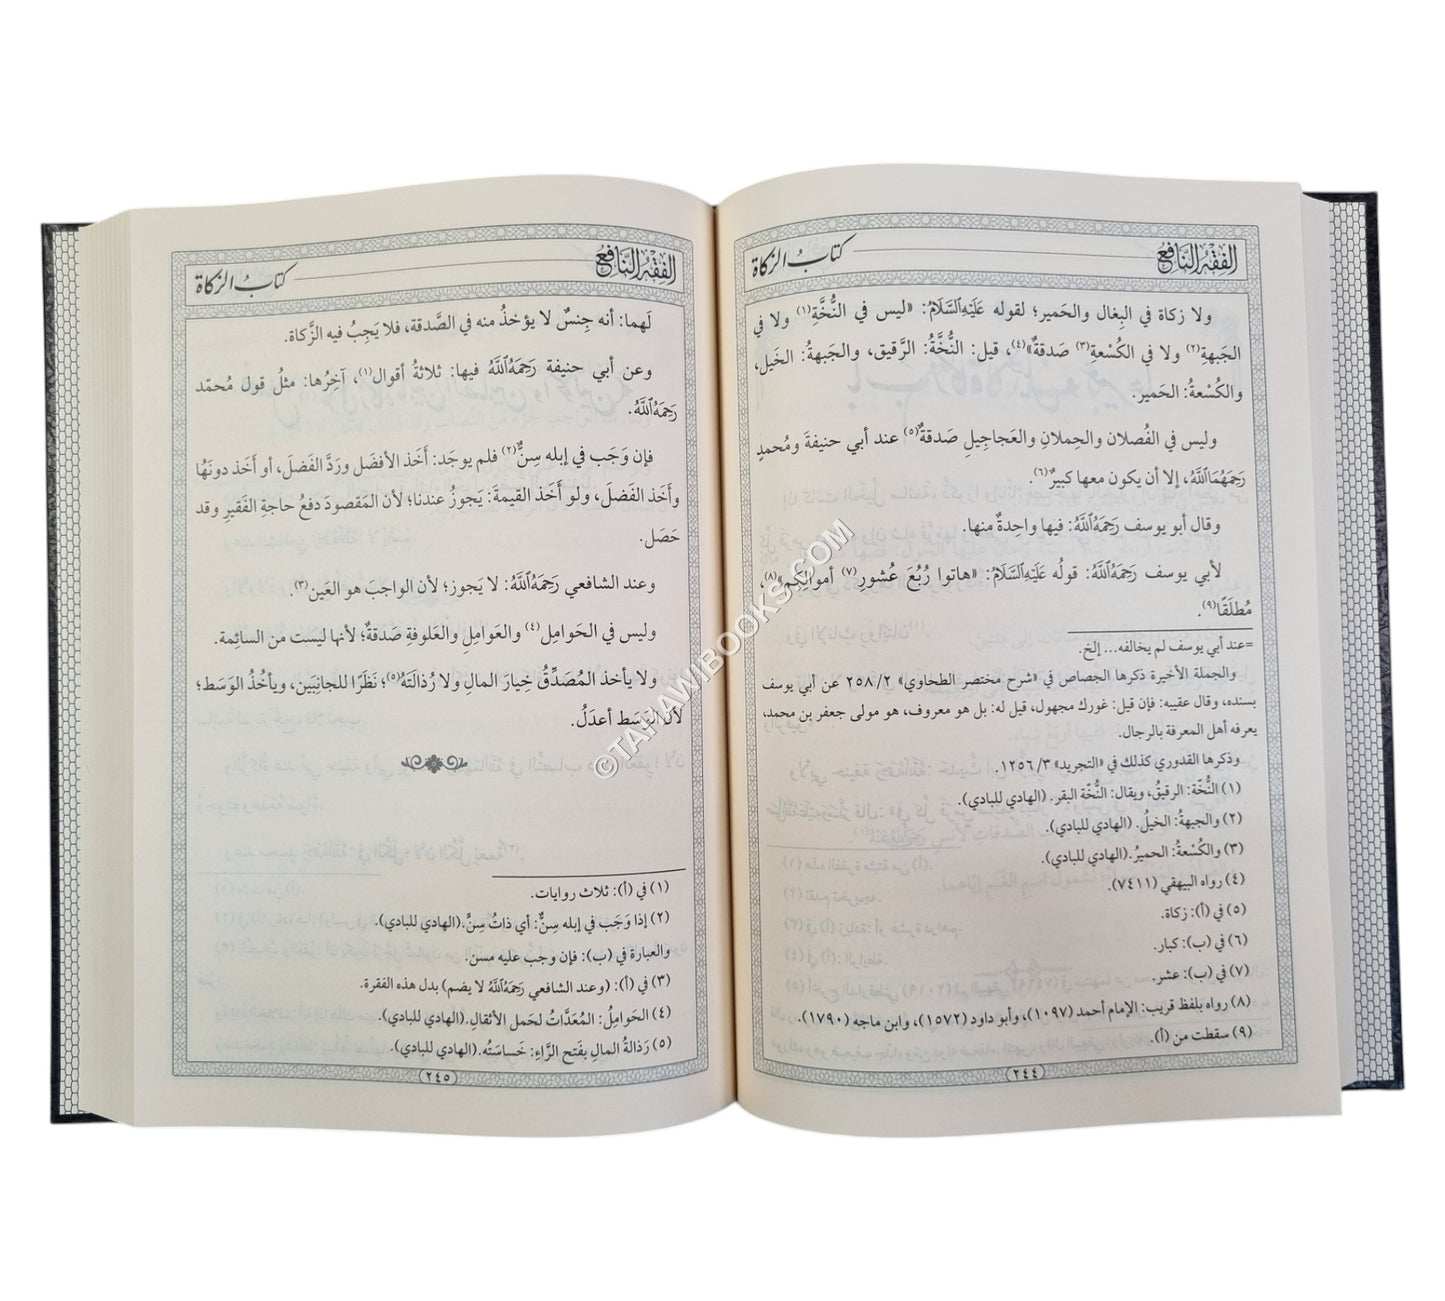 الفقه النافع
كتاب الزكاة
ولا زكاة في البِغال والحَمير؛ لقوله عَلَيْهِ السَّلَامُ: «ليس في النُّخَّةِ(١) ولا في
الجَبهةِ(٢) ولا في الكُسْعةِ(٣) صَدقةٌ»(٤)، قيل: النُّخَّةُ: الرَّقيق، والجَبهةُ: الخَيل،
والكُسْعةُ: الحَمير.
وليس في الفُصلان والحِملانِ والعَجاجِيلِ صَدقةٌ(٥) عند أبي حنيفةَ ومُحمدٍ
رَحِمَهُمَااللَّهُ، إلا أن يكون معها كبيرٌ(٦).
وقال أبو يوسف رَحِمَهُ اللَّهُ: فيها واحِدةٌ منها.
لأبي يوسف رَحِمَهُ اللَّهُ: قولُه عَلَيْهِ السَّلَامُ: «هاتوا رُبُعَ عُشورِ(٧) أموالِكم»(٨)،
مُطلَقًا(٩).
=عند أبي يوسف لم يخالفه... إلخ.
والجملة الأخيرة ذكرها الجصاص في «شرح مختصر الطحاوي» ٢/ ٢٥٨ عن أبي يوسف
بسنده، وقال عقيبه: فإن قيل: غورك مجهول، قيل له: بل هو معروف، هو مولى جعفر بن محمد،
يعرفه أهل المعرفة بالرجال.
وذكرها القدوري كذلك في «التجريد» ٣/ ١٢٥٦.
(١) النُّخّة: الرقيقُ، ويقال: النُّخّة البقر. (الهادي للبادي).
(٢) والجبهةُ: الخيلُ. (الهادي للبادي).
(٣) والكُسْعةُ: الحميرُ.(الهادي للبادي).
(٤) رواه البيهقي (٧٤١١).
(٥) في (أ): زكاة.
(٦) في (ب): كبار.
(٧) في (ب): عشر.
(٨) رواه بلفظ قريب: الإمام أحمد (١٠٩٧)، وأبو داود (١٥٧٢)، وابن ماجه (١٧٩٠).
(٩) سقطت من (أ).
٢٤٤
الفقه النافع
كتاب الزكاة
لَهما: أنه جِنسٌ لا يؤخذُ منه في الصَّدقة، فلا يَجِبُ فيه الزَّكاة.
وعن أبي حنيفة رَحِمَهُ اللَّهُ فيها: ثلاثةُ أقوال(١)، آخِرُها: مثلُ قول مُحمّد
رَحِمَهُ اللَّهُ.
فإن وَجَب في إبله سِنٌّ(٢) فلم يوجَد: أَخذ الأفضل ورَدَّ الفَضلَ، أو أَخذ دونَهُا
وأَخَذ الفَضلَ، ولو أَخَذ القيمةَ: يَجوزُ عندنا؛ لأن المَقصودَ دفعُ حاجةِ الفَقيرِ وقد
حَصَل.
وعند الشافعي رَحِمَهُ اللَّهُ: لا يَجوز؛ لأن الواجبَ هو العَين(٣).
وليس في الحَوامِل(٤) والعَوامِلِ والعَلوفةِ صَدقةٌ؛ لأنها ليست من السائِمة.
ولا يأخذ المُصَدِّقُ خِيارَ المالِ ولا رُذالَتَهُ(٥)؛ نَظَرًا للجانِبَين، ويأخُذُ الوَسَط؛
لأن الوَسَط أعدَلُ.
(١) في (أ): ثلاث روايات.
(٢) إذا وَجَب في إبله سِنٌّ: أي ذاتُ سِنٍّ.(الهادي للبادي).
والعبارة في (ب): فإن وجب عليه مسن.
(٣) في (أ): (وعند الشافعي رَحِمَهُ اللَّهُ لا يضم) بدل هذه الفقرة.
(٤) الحَوامِلُ: المُعَدَّاتُ لحَمل الأثقال.(الهادي للبادي).
(٥) رَذالةُ المالِ بفَتح الرَّاءِ: خَساسَتُه.(الهادي للبادي).
٢٤٥
©TAHAWIBOOKS.COM